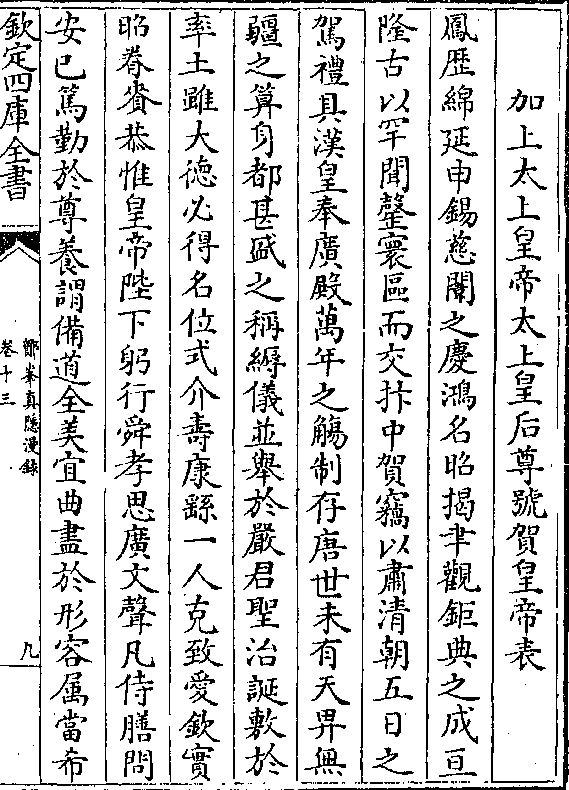 加上太上皇帝太上皇后尊號賀皇帝表
鳳歴綿延申錫慈闈之慶鴻名昭揭聿觀鉅典之成亘
隆古以罕聞罄寰區而交抃中賀竊以肅清朝五日之
駕禮具漢皇奉廣殿萬年之觴制存唐世未有天畀無
疆之算身都甚盛之稱縟儀並舉於嚴君聖治誕敷於
率土雖大德必得名位式介壽康繇一人克致愛欽實
昭眷賚恭惟皇帝陛下躬行舜孝思廣文聲凡侍膳問
安已篤勤於尊養謂備道全美宜曲盡於形容屬當希
欽定四庫全書
鄮峯真隠漫録
卷十三
九